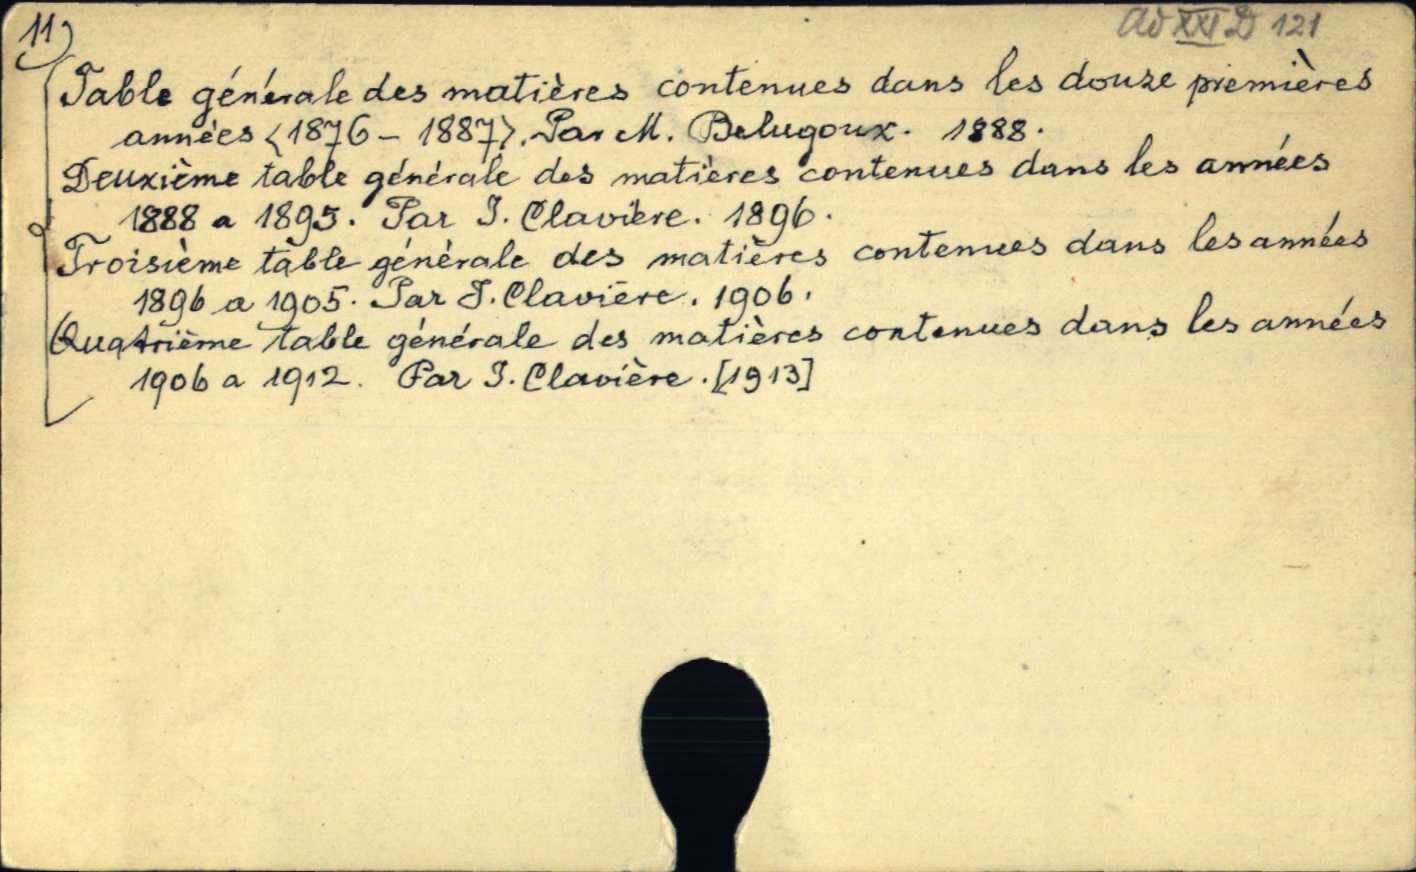 11)
Ad XXI D 121
Table générale des matières contenues dans les douze premières
années <1876 - 1887>. Par M. Belugoux. 1888.
Deuxième table générale des matières contenues dans les années
1888 a 1895. Par J. Clavière. 1896.
Troisième table générale des matières contenues dans les années
1896 a 1905. Par J. Clavière. 1906.
Quatrième table générale des matières contenues dans les années
1906 a 1912. Par J. Clavière. [1913]